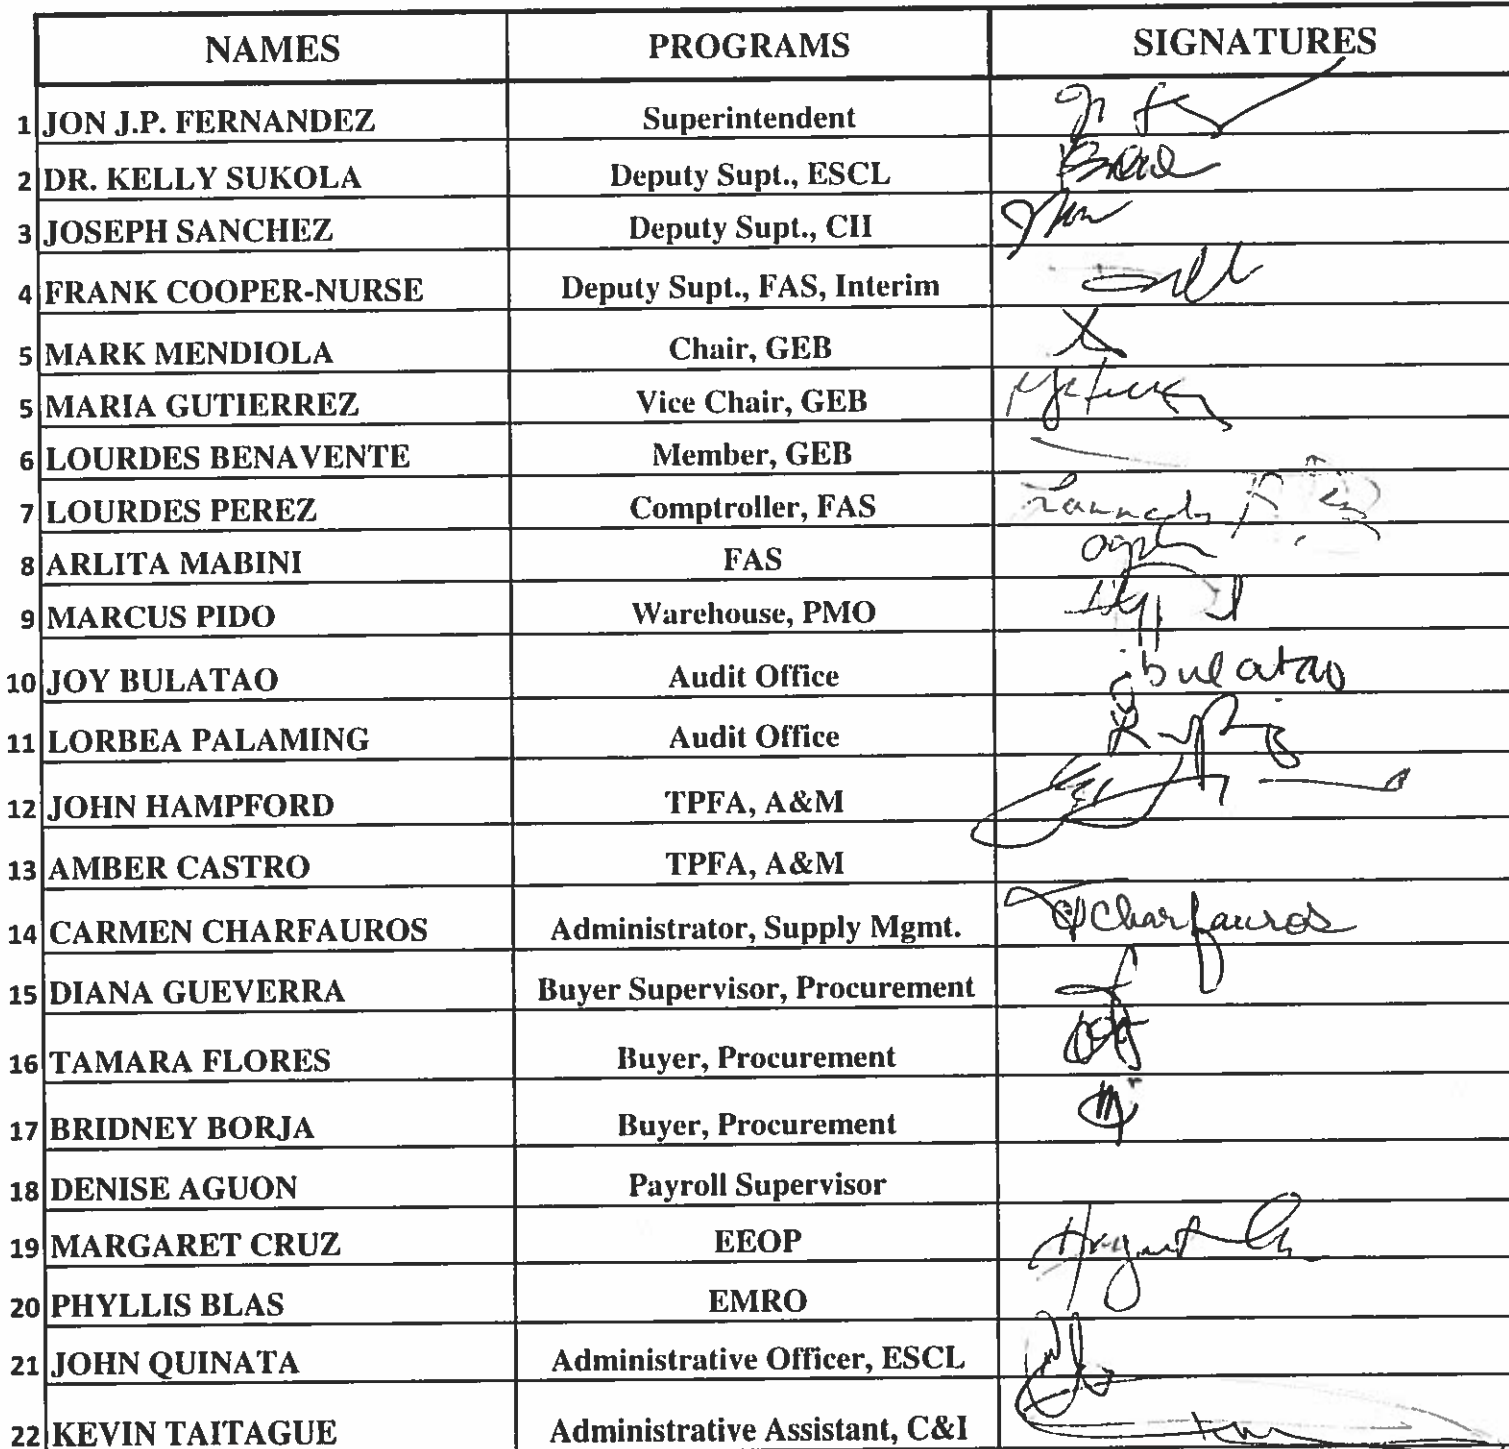 NAMES PROGRAMS SIGNATURES
1 JON J.P. FERNANDEZ Superintendent
2 DR. KELLY SUKOLA Deputy Supt., ESCL
3 JOSEPH SANCHEZ Deputy Supt., CII
4 FRANK COOPER-NURSE Deputy Supt., FAS, Interim
5 MARK MENDIOLA Chair, GEB
5 MARIA GUTIERREZ Vice Chair, GEB
6 LOURDES BENAVENTE Member, GEB
7 LOURDES PEREZ Comptroller, FAS
8 ARLITA MABINI FAS
9 MARCUS PIDO Warehouse, PMO
10 JOY BULATAO Audit Office jbulatao
11 LORBEA PALAMING Audit Office
12 JOHN HAMPFORD TPFA, A&M
13 AMBER CASTRO TPFA, A&M
14 CARMEN CHARFAUROS Administrator, Supply Mgmt. Charfauros
15 DIANA GUEVERRA Buyer Supervisor, Procurement
16 TAMARA FLORES Buyer, Procurement
17 BRIDNEY BORJA Buyer, Procurement
18 DENISE AGUON Payroll Supervisor
19 MARGARET CRUZ EEOP
20 PHYLLIS BLAS EMRO
21 JOHN QUINATA Administrative Officer, ESCL
22 KEVIN TAITAGUE Administrative Assistant, C&I